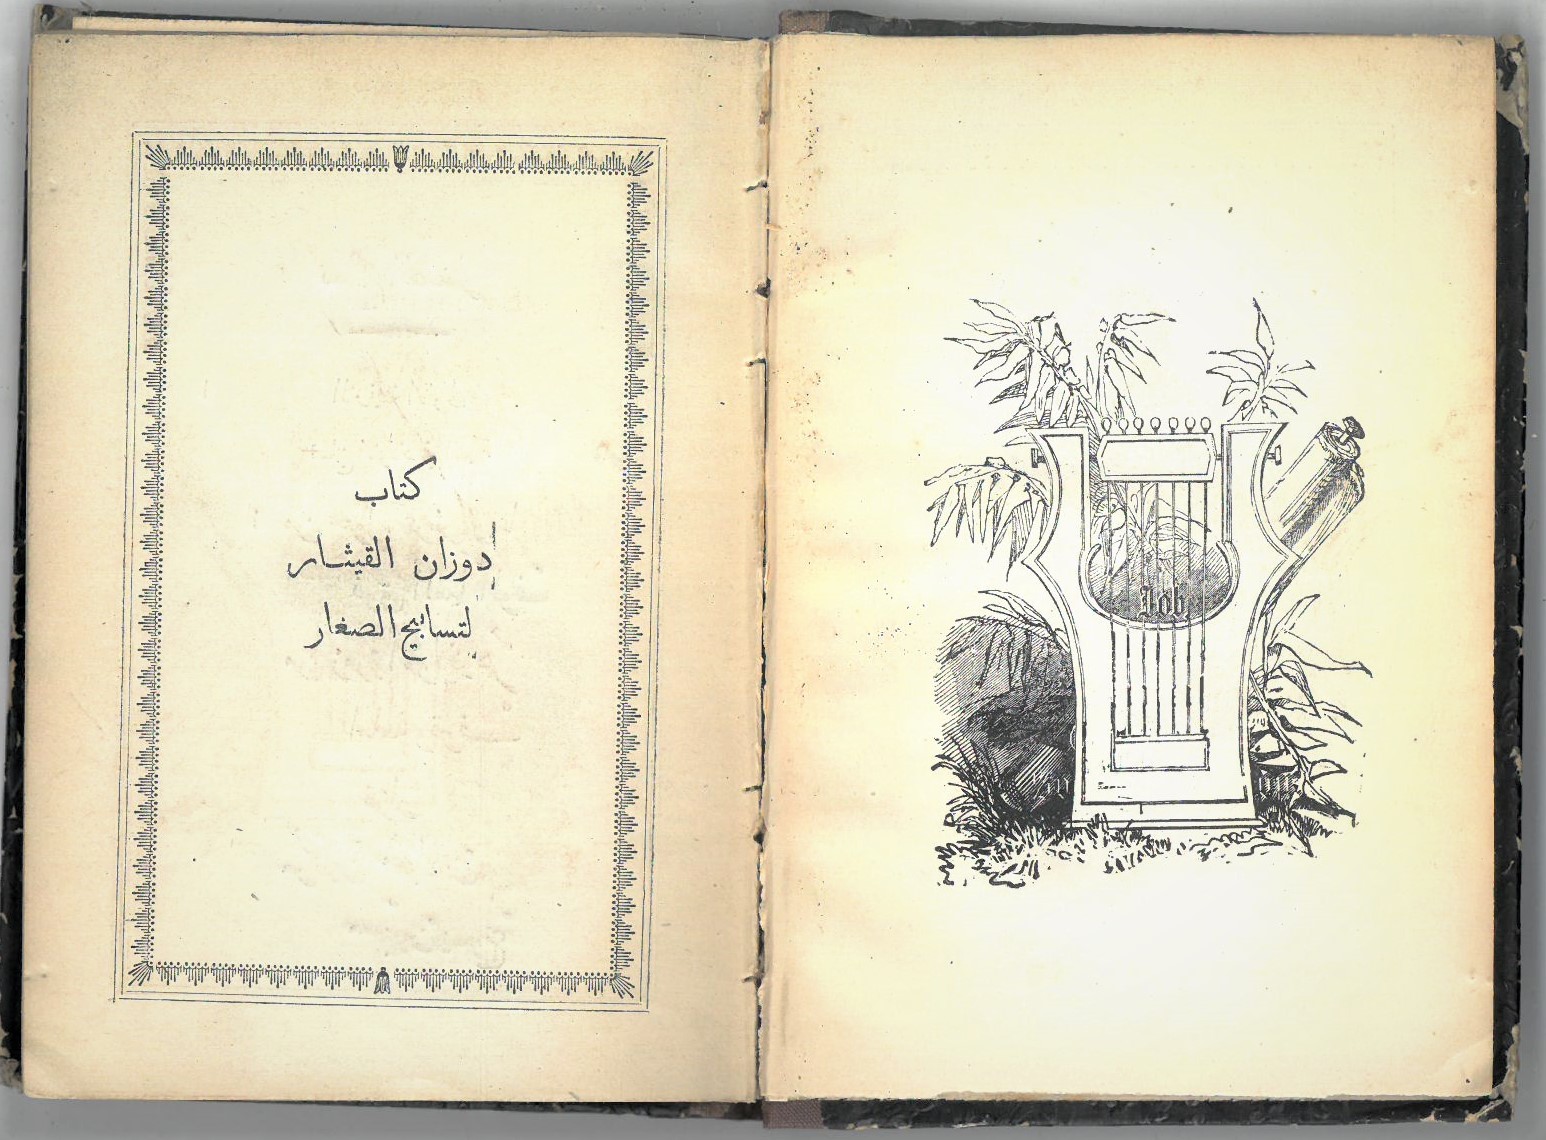 كتاب
دوزان القيثار
لتسابيح الصغار
Job